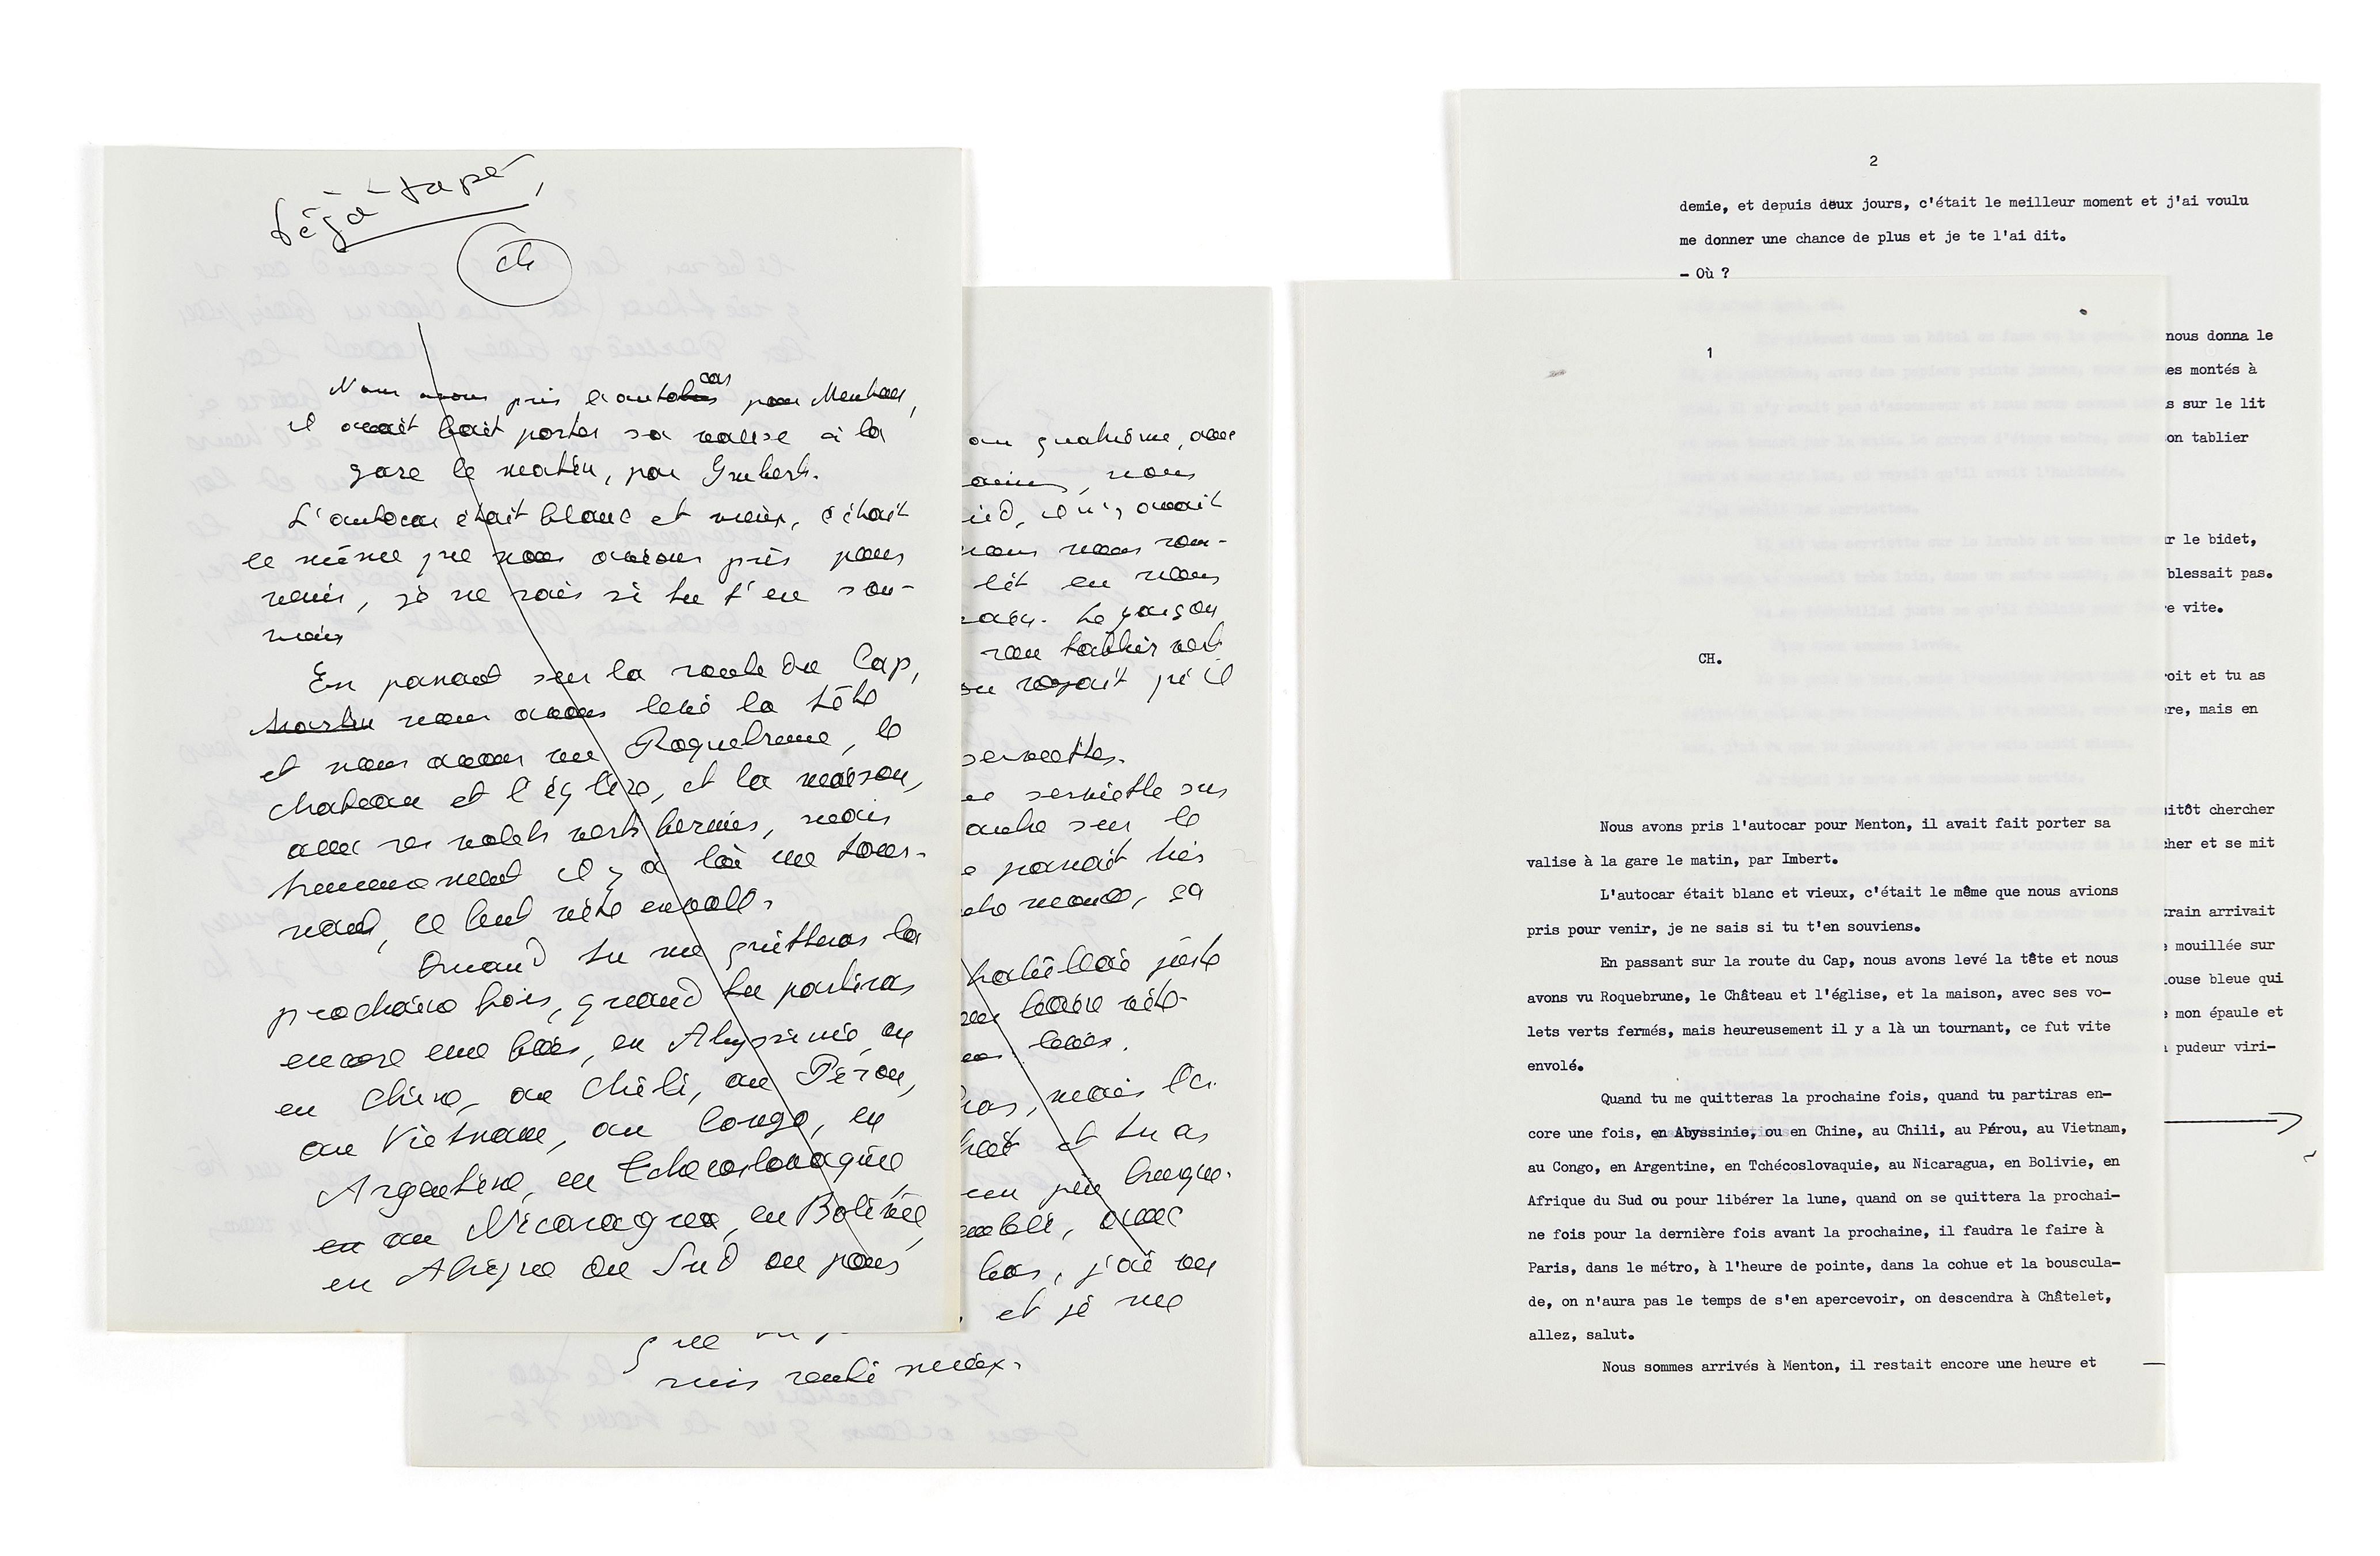 Déjà tapé
Ch
Nous avons pris l'autobus car pour Menton,
il avait fait porter sa valise à la
gare le matin, par Imbert.
L'autocar était blanc et vieux, c'était
le même que nous avions pris pour
venir, je ne sais si tu t'en sou-
viens
En passant sur la route du Cap,
nous avons levé la tête
et nous avons vu Roquebrune, le
chateau et l'église, et la maison,
avec ses volets verts fermés, mais
heureusement il y a là un tour-
nant, ce fut vite envolé.
Quand tu me quitteras la
prochaine fois, quand tu partiras
encore une fois, en Abyssinie, ou
en Chine, au Chili, au Pérou,
au Vietnam, au Congo, en
Argentine, en Tchecoslovaquie,
en au Nicaragua, en Bolivie,
en Afrique du Sud ou pour
au quatrième, avec
nous
il n'y avait
nous nous
lit en nous
Le garçon
son tablier vert
on voyait qu'il
serviettes.
serviette sur
autre sur le
parlait très
monde, ça
juste
faire vite.
levés.
mais l'en-
et tu as
un peu brusque-
avec
bas, j'ai vu
et je me
que
suis senti mieux.
1
CH.
Nous avons pris l'autocar pour Menton, il avait fait porter sa
valise à la gare le matin, par Imbert.
L'autocar était blanc et vieux, c'était le même que nous avions
pris pour venir, je ne sais si tu t'en souviens.
En passant sur la route du Cap, nous avons levé la tête et nous
avons vu Roquebrune, le Château et l'église, et la maison, avec ses vo-
lets verts fermés, mais heureusement il y a là un tournant, ce fut vite
envolé.
Quand tu me quitteras la prochaine fois, quand tu partiras en-
core une fois, en Abyssinie, ou en Chine, au Chili, au Pérou, au Vietnam,
au Congo, en Argentine, en Tchécoslovaquie, au Nicaragua, en Bolivie, en
Afrique du Sud ou pour libérer la lune, quand on se quittera la prochai-
ne fois pour la dernière fois avant la prochaine, il faudra le faire à
Paris, dans le métro, à l'heure de pointe, dans la cohue et la bouscula-
de, on n'aura pas le temps de s'en apercevoir, on descendra à Châtelet,
allez, salut.
Nous sommes arrivés à Menton, il restait encore une heure et
2
demie, et depuis deux jours, c'était le meilleur moment et j'ai voulu
me donner une chance de plus et je te l'ai dit.
- Où ?
nous donna le
es montés à
s sur le lit
on tablier
r le bidet,
blessait pas.
e vite.
roit et tu as
re, mais en
itôt chercher
cher et se mit
train arrivait
e mouillée sur
louse bleue qui
e mon épaule et
a pudeur viri-